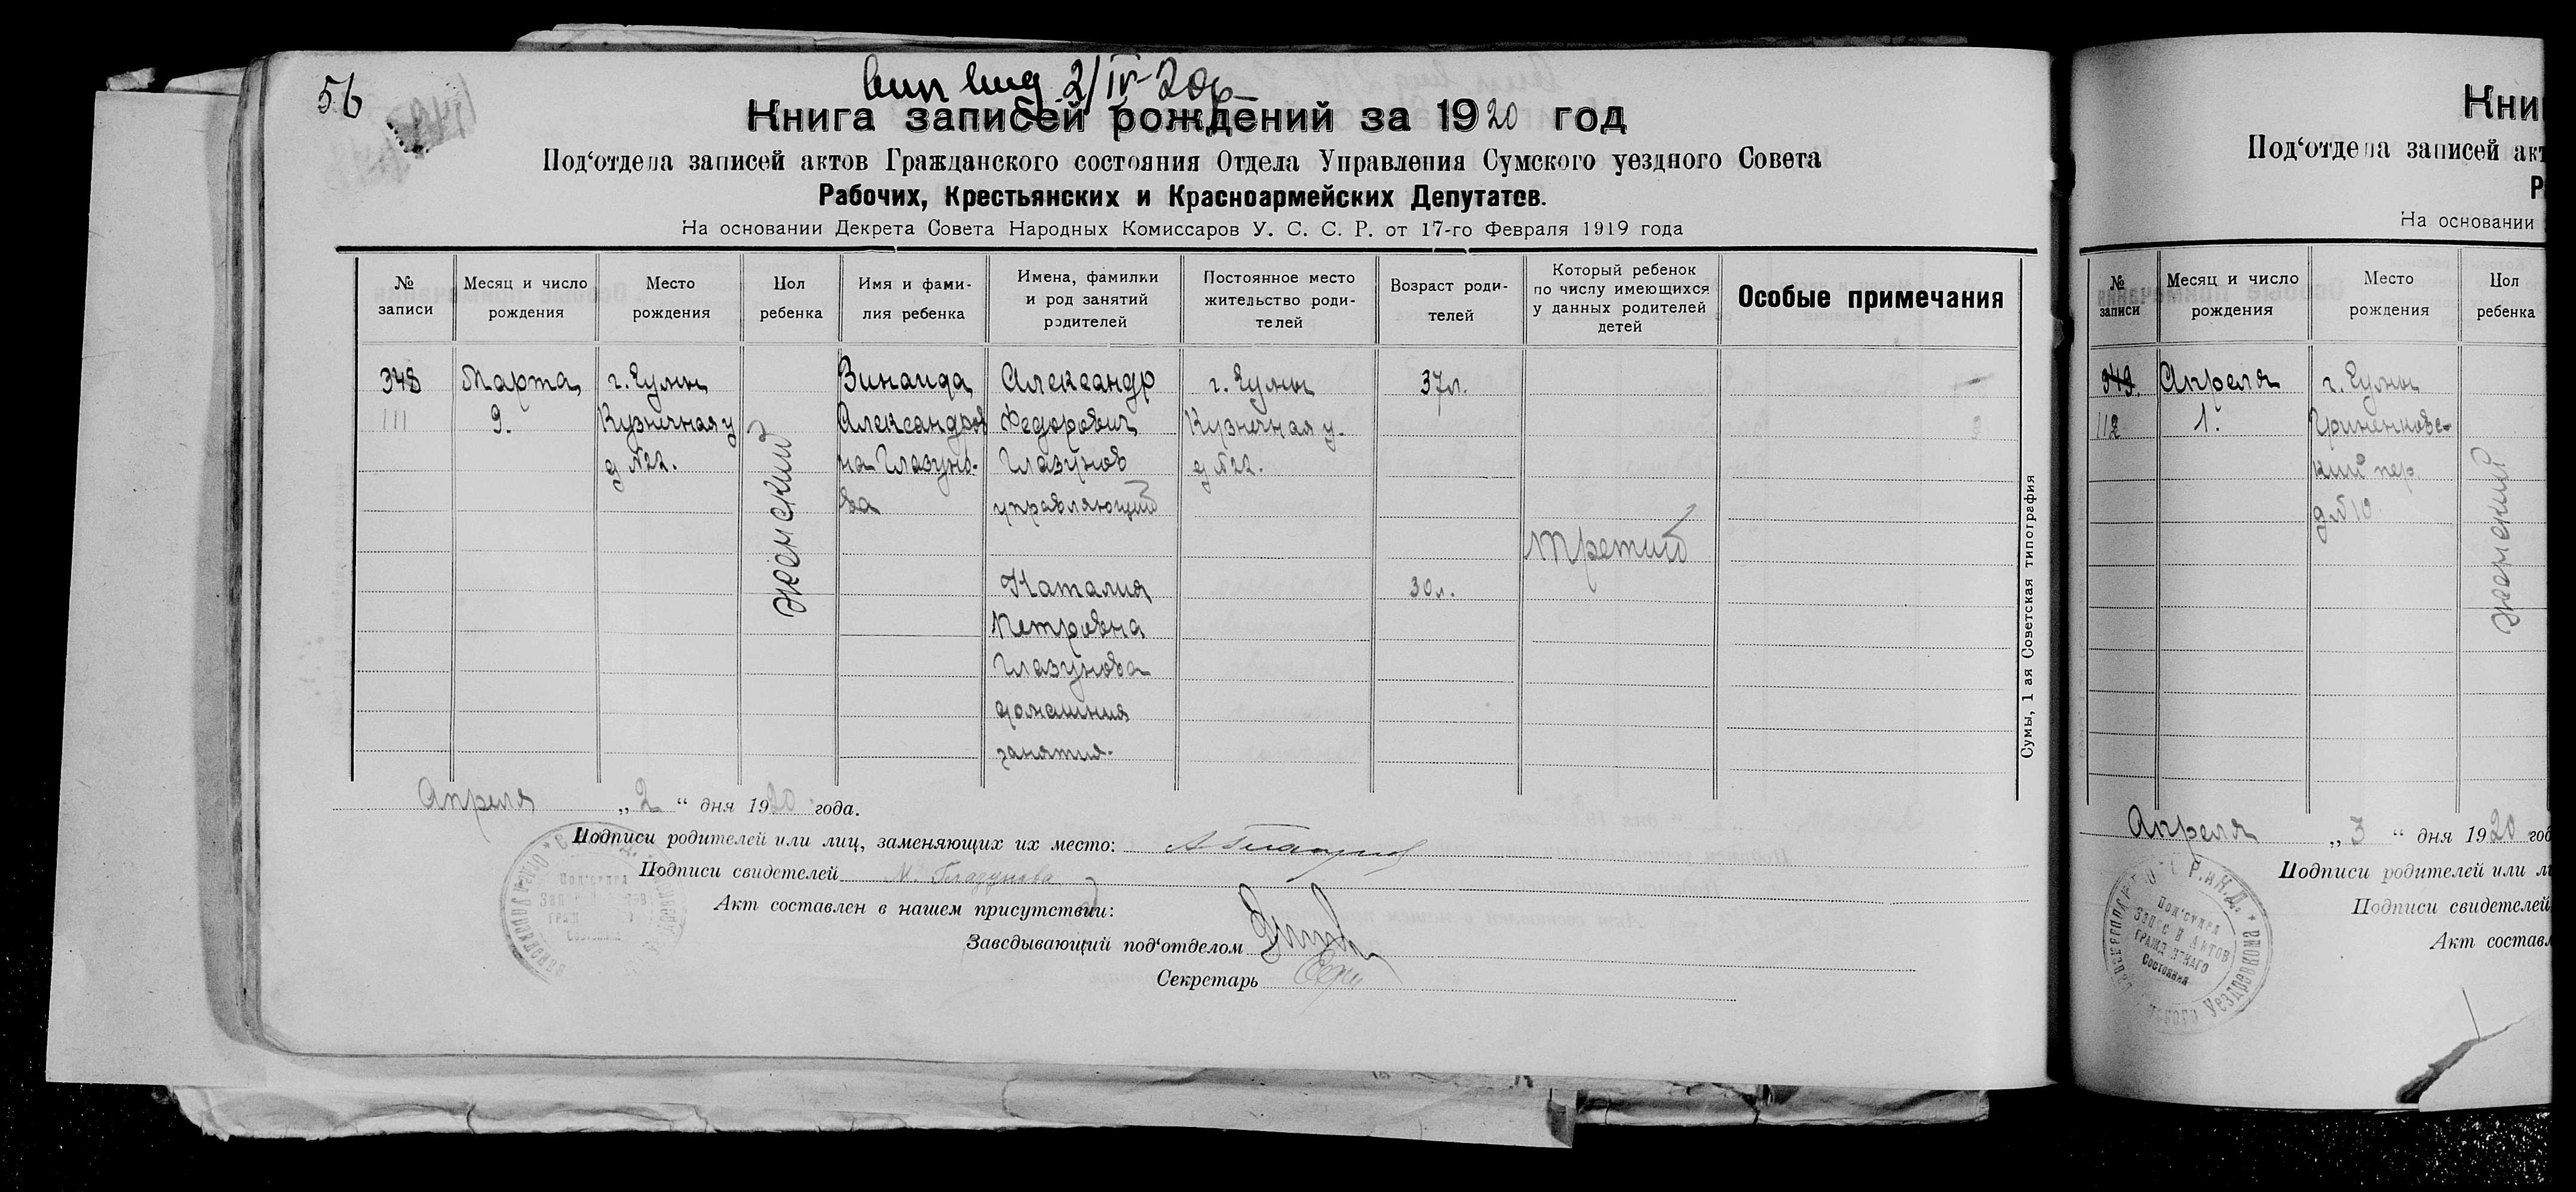 56
2/IV-20
Книга записей рождений за 1920 год
Под‘отдела записей актов Гражданского состояния Отдела Управления Сумского уездного Совета
Рабочих, Крестьянских и Красноармейских Депутатов.
На основании Декрета Совета Народных Комиссаров У. С. С. Р. от 17-го Февраля 1919 года
№ записи
Месяц и число рождения
Место рождения
Пол ребенка
Имя и фами-
лия ребенка
Имена, фамилии
и род занятий
родителей
Постоянное место
жительство роди-
телей
Возраст роди-
телей
Который ребенок
по числу имеющихся
у данных родителей
детей
Особые примечания
348
111
Марта
9.
г. Сумы
Кузнечная у
д №22.
женский
Зинаида
Александров
на Глазуно-
ва
Александр
Федорович
Глазунов
управляющий
Наталия
Петровна
Глазунова
домашния
занятия.
г. Сумы
Кузнечная у.
д №22.
37л.
30л.
третий
Сумы, 1 ая Советская типография
Апреля „2“ дня 1920 года.
Подписи родителей или лиц, заменяющих их место: А Глазунов
Подписи свидетелей М. Глазунова
Акт составлен в нашем присутствии:
Заведывающий под‘отделом
Секретарь
Кни
Под‘отдела записей акт
Р
На основании
№ записи
Месяц и число рождения
Место рождения
Пол ребенка
349.
112
Апреля
1.
г. Сумы
кий пер
д №10
женский
Апреля „3“ дня 1920 год
Подписи родителей или л
Подписи свидетелей
Акт состав
Под‘отдел
Записей Актов
Гражданского
Состояния